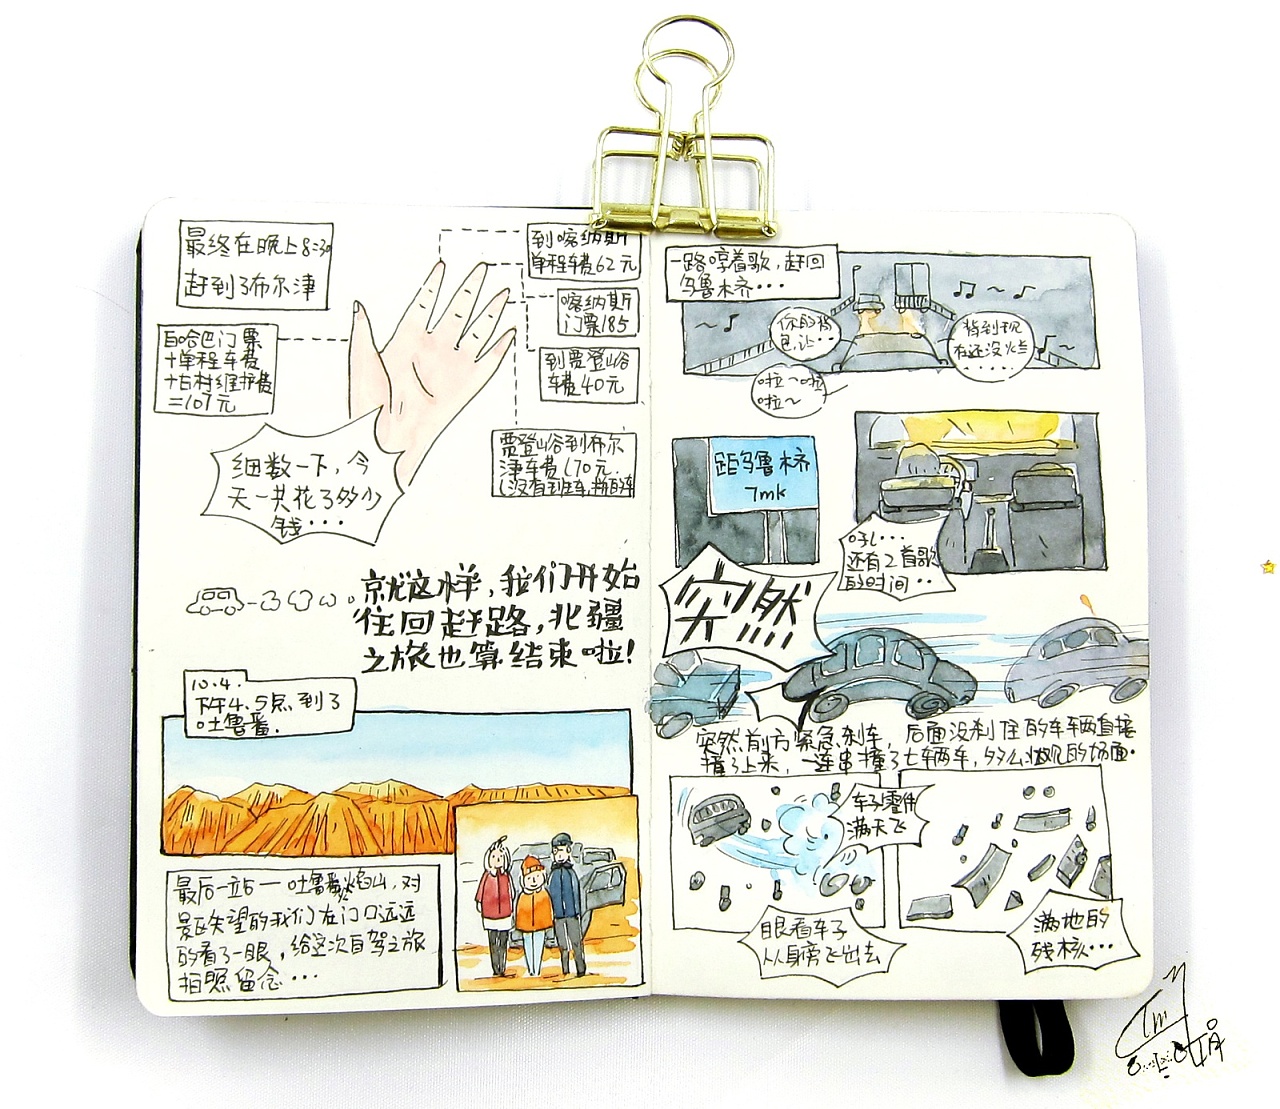 最终在晚上8:30
赶到了布尔津
到喀纳斯
单程车费62元
喀纳斯
门票185
到贾登峪
车费40元
贾登峪到布尔
津车费170元.
白哈巴门票
+单程车费
+白村维护费
=107元
细数一下，今
天一共花了多少
钱···
就这样，我们开始
往回赶路，北疆
之旅也算结束啦！
10.4.
下午4.5点到了
吐鲁番.
最后一站—吐鲁番火焰山，对
景区失望的我们在门口远远
的看了一眼，给这次自驾之旅
拍照留念···
一路哼着歌，赶回
乌鲁木齐···
你的背
包，让··
背到现
在还没烂
······
啦~啦
啦~
距乌鲁木齐
7mk
还有2首歌
的时间··
突然
突然前方紧急刹车，后面没刹住的车辆直接
撞了上来，一连串撞了七辆车，多么壮观的场面·
车子零件
满天飞
眼看车子
从身旁飞出去
满地的
残核···